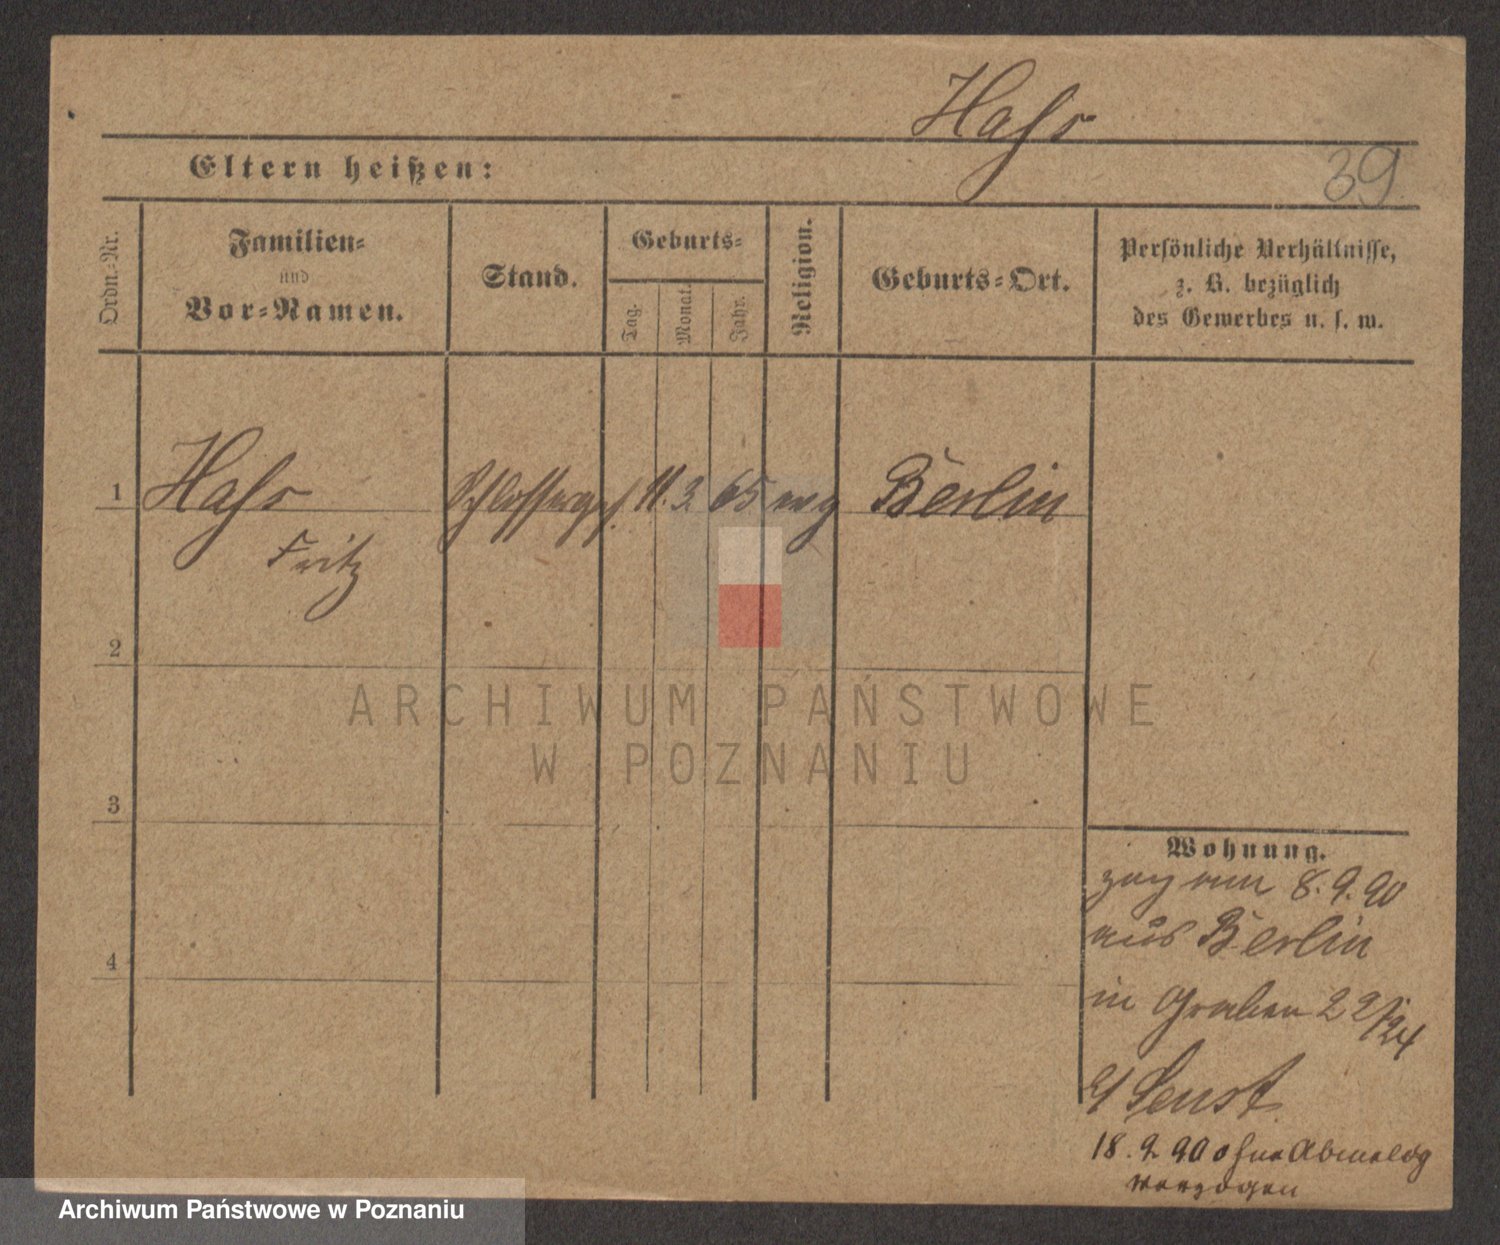 Hahr
39
Eltern heißen:
Ordn.-Nr.
Familien-
und
Vor-Namen.
Stand.
Geburts-
Tag.
Monat.
Jahr.
Religion.
Geburts-Ort.
Persönliche Verhältnisse,
z. B. bezüglich
des Gewerbes u. s. w.
1
Hahr
Schlosserges.
11. 3. 65
evg
Berlin
Fritz
2
3
4
Wohnung.
zog am 8. 9. 90
aus Berlin
in Graben 22/24
18. 9. 90 ohne Abmeldg
verzogen
ARCHIWUM PAŃSTWOWE
W POZNANIU
Archiwum Państwowe w Poznaniu